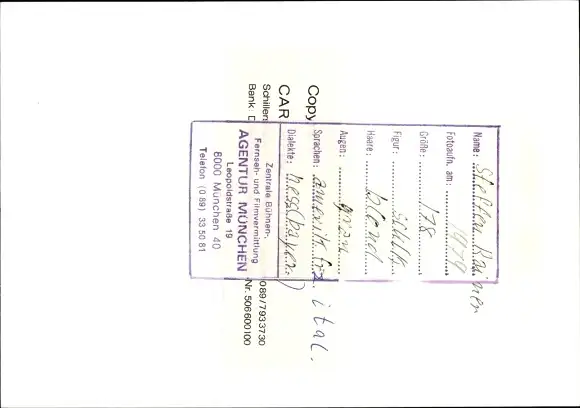 Name: Steffen
Fotoaufn. am: 1979
Größe: 178
Figur: schlk
Haare: blond
Augen: grün
Sprachen: amerik. frz. ital.
Dialekte: hess. (bayer.)
Zentrale Bühnen-,
Fernseh- und Filmvermittlung
AGENTUR MÜNCHEN
Leopoldstraße 19
8000 München 40
Telefon (0 89) 33 50 81
Copy
CAR
Schillen
089/7933730
Bank:
Nr. 506600100